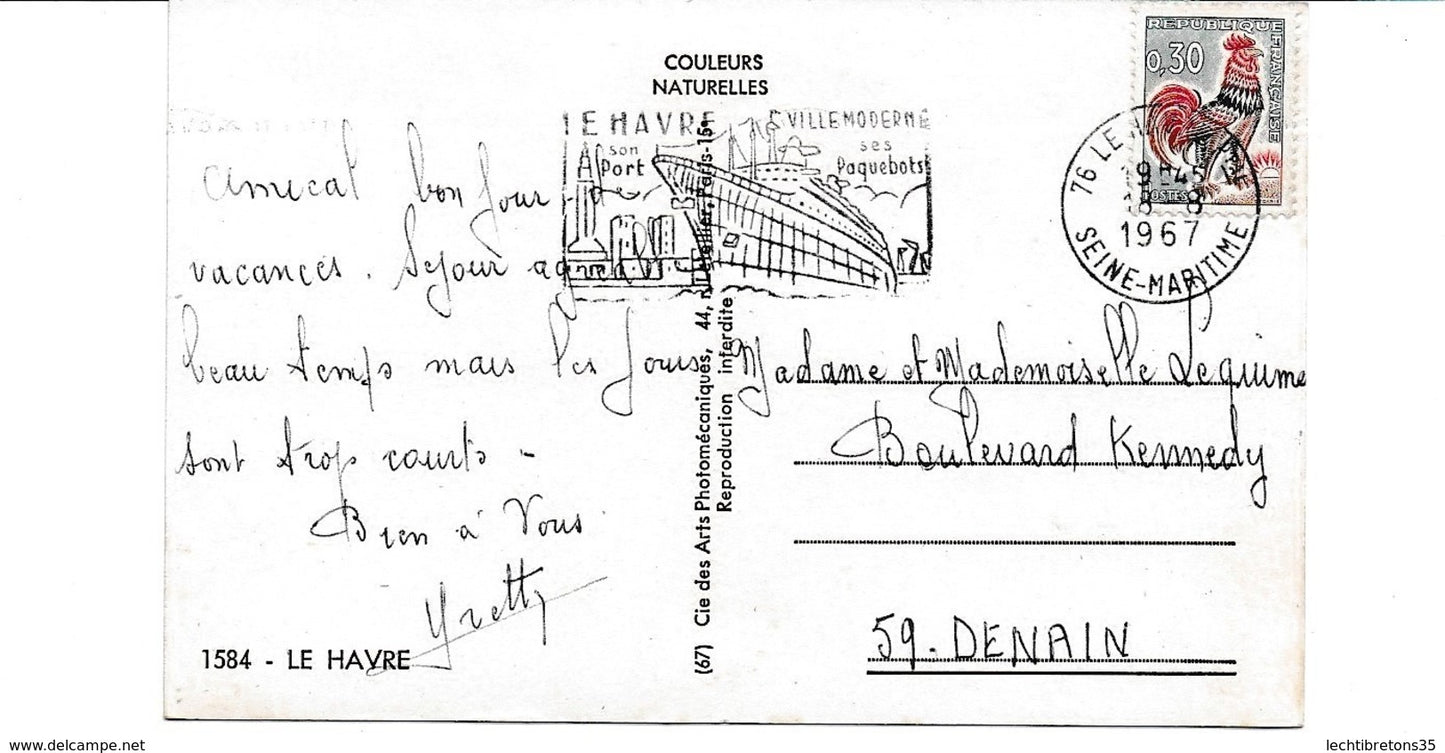 COULEURS
NATURELLES
REPUBLIQUE FRANÇAISE
0,30
POSTES
LE HAVRE
son
Port
VILLE MODERNE
ses
Paquebots
76 LE
19H45
8-8
1967
SEINE-MARITIME
Amical bon jour de
vacances. Séjour agréable
beau temps mais les jours
sont trop courts -
Bien à Vous
Yvetty
1584 - LE HAVRE
(67) Cie des Arts Photomécaniques, 44, r. Letellier, Paris-15e
Reproduction interdite
Madame et Mademoiselle Lequime
Boulevard Kennedy
59. DENAIN
www.delcampe.net
lechtibretons35